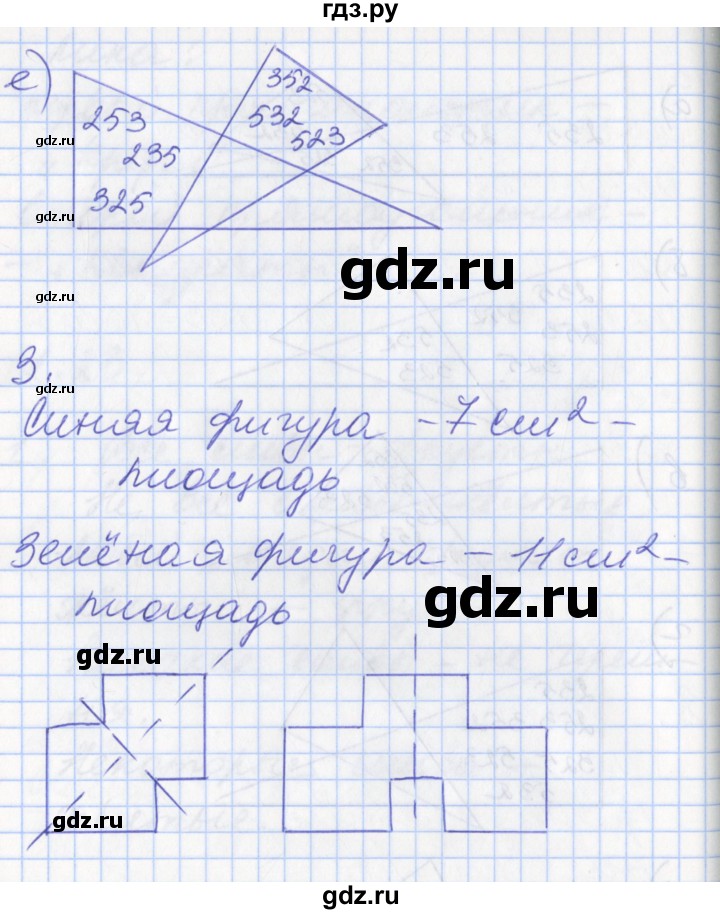 гдз.ру
е)
352
253
532
523
gdz.ru
235
325
gdz.ru
gdz.ru
gdz.ru
3.
Синяя фигура - 7 см² -
площадь
Зелёная фигура - 11 см² -
площадь
gdz.ru
gdz.ru
gdz.ru
gdz.ru